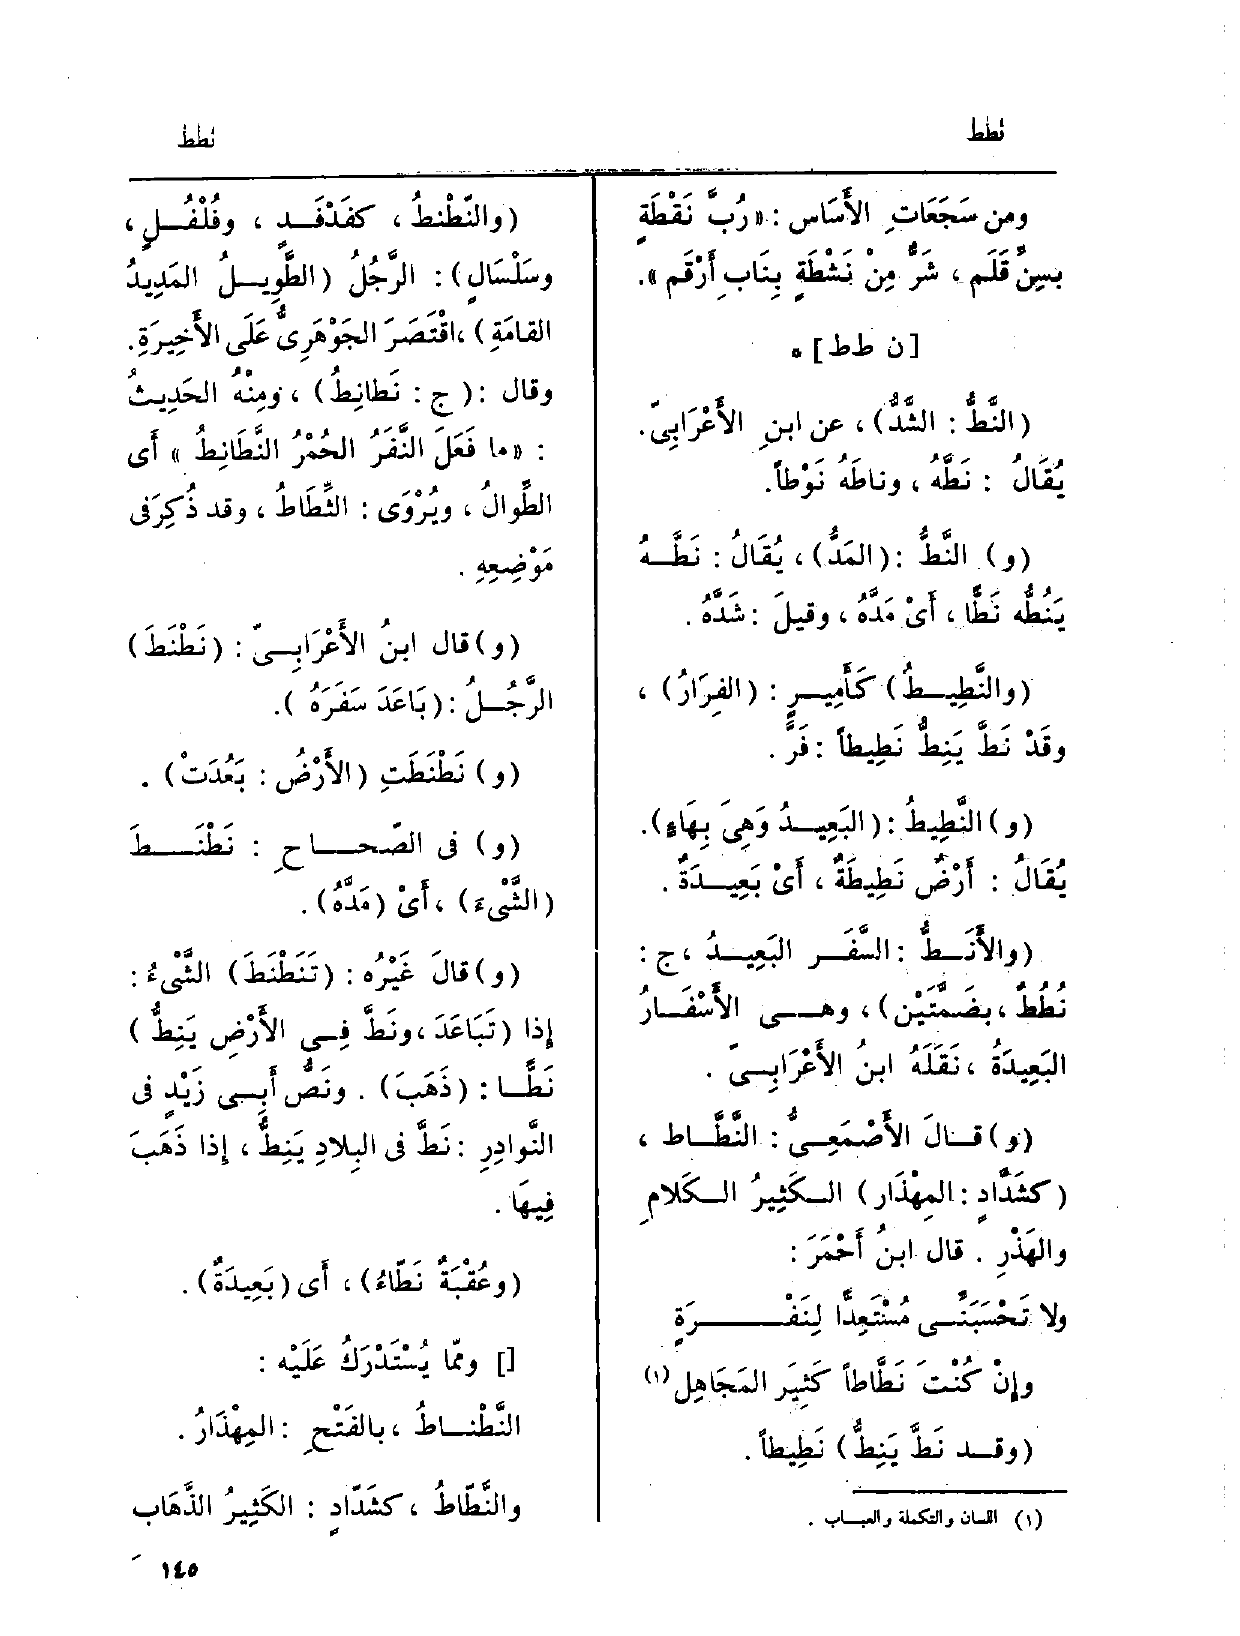 نطط
نطط
ومن سَجَعَاتِ الأَسَاس : «رُبَّ نَقْطَةٍ
بسِنِّ قَلَمٍ ، شَرٌّ مِنْ نَشْطَةٍ بِنَابِ أَرْقَم ».
[ ن ط ط ] *
(النَّطُّ : الشَّدُّ) ، عن ابنِ الأَعْرَابِيّ.
يُقَالُ : نَطَّه ، وناطَهُ نَوْطاً.
(و) النَّطُّ : (المَدُّ) ، يُقَالُ : نَطَّــهُ
يَنُطُّه نَطًّا ، أَىْ مَدَّهُ ، وقيلَ : شَدَّهُ .
(والنَّطِيــطُ) كَأَمِيــرٍ : (الفِرَارُ) ،
وقَدْ نَطَّ يَنِطُّ نَطِيطاً : فَرَّ .
(و) النَّطِيطُ : (البَعِيــدُ وَهِىَ بِهَاءٍ).
يُقَالُ : أَرْضٌ نَطِيطَةٌ ، أَىْ بَعِيــدَةٌ .
(والأَنَــطُّ : السَّفَــر البَعِيــدُ ، ج :
نُطُطٌ ، بضَــمَّتَيْنِ) ، وهــى الأَسْفَــارُ
البَعِيدَةُ ، نَقَلَهُ ابنُ الأَعْرَابِــىّ .
(و) قــالَ الأَصْمَعِــىُّ : النَّطَّــاط ،
(كشَدَّادٍ : المِهْذَار) الــكَثِيرُ الــكَلامِ
والهَذْرِ . قال ابنُ أَحْمَرَ :
ولا تَحْسَبَنِّــى مُسْتَعِدًّا لِنَفْــــرَةٍ
وإِنْ كُنْتَ نَطَّاطاً كَثِيرَ المَجَاهِلِ (١)
(وقــد نَطَّ يَنِطُّ) نَطِيطاً .
(١) اللسان والتكملة والعبــاب .
(والنَّطْنِطُ ، كفَدْفَــد ، وفُلْفُــلٍ ،
وسَلْسَالٍ) : الرَّجُلُ (الطَّوِيــلُ المَدِيدُ
القامَةِ) ، اقْتَصَرَ الجَوْهَرِىُّ عَلَى الأَخِيرَةِ .
وقال : (ج : نَطانِطُ) ، ومِنْهُ الحَدِيثُ
: « ما فَعَلَ النَّفَرُ الحُمْرُ النَّطَانِطُ » أَى
الطِّوالُ ، ويُرْوَى : الثِّطَاطُ ، وقد ذُكِرَ فى
مَوْضِعِهِ .
(و) قال ابنُ الأَعْرَابِــىّ : (نَطْنَطَ)
الرَّجُــلُ : (بَاعَدَ سَفَرَهُ ) .
(و) نَطْنَطَتِ (الأَرْضُ : بَعُدَتْ) .
(و) فى الصّحــاح : نَطْنَــطَ
(الشَّىْءَ) ، أَىْ (مَدَّهُ) .
(و) قالَ غَيْرُه : (تَنَطْنَطَ) الشَّىْءُ :
إِذا (تَبَاعَدَ ، ونَطَّ فِــى الأَرْضِ يَنِطُّ )
نَطًّــا : (ذَهَبَ) . ونَصُّ أَبِــى زَيْدٍ فى
النَّوادِرِ : نَطَّ فى البِلادِ يَنِطُّ ، إِذا ذَهَبَ
فِيهَا .
(وعُقْبَةٌ نَطَّاءُ) ، أَى (بَعِيدَةٌ) .
[] وممّا يُسْتَدْرَكُ عَلَيْه :
النَّطْنــاطُ ، بالفَتْحِ : المِهْذَارُ .
والنَّطّاطُ ، كشَدّادٍ : الكَثِيرُ الذَّهَاب
١٤٥